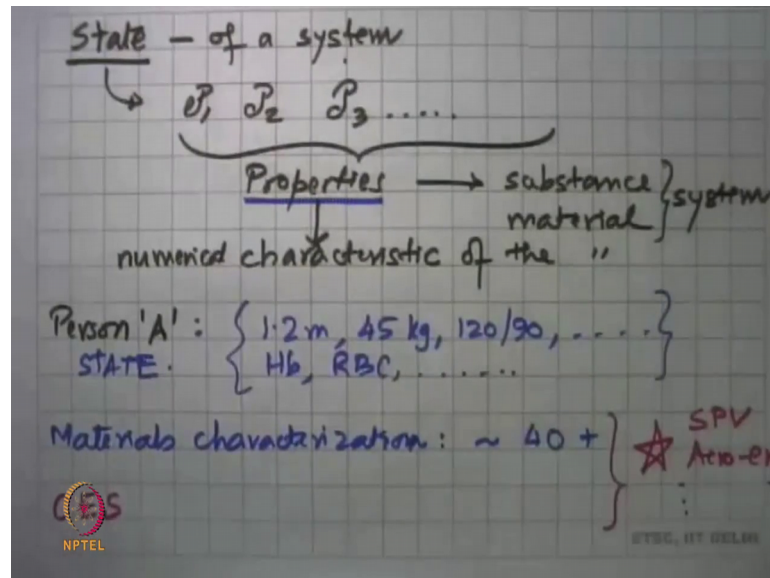 State – of a system
P1 P2 P3 .....
Properties → substance } system
material
numerical characteristic of the "
Person 'A' : { 1.2 m, 45 kg, 120/90, .... }
STATE. Hb, RBC, ......
Materials characterization : ~ 40 + } ☆ SPV
Aero-e
:
CES
NPTEL
ETSC, IIT DELHI